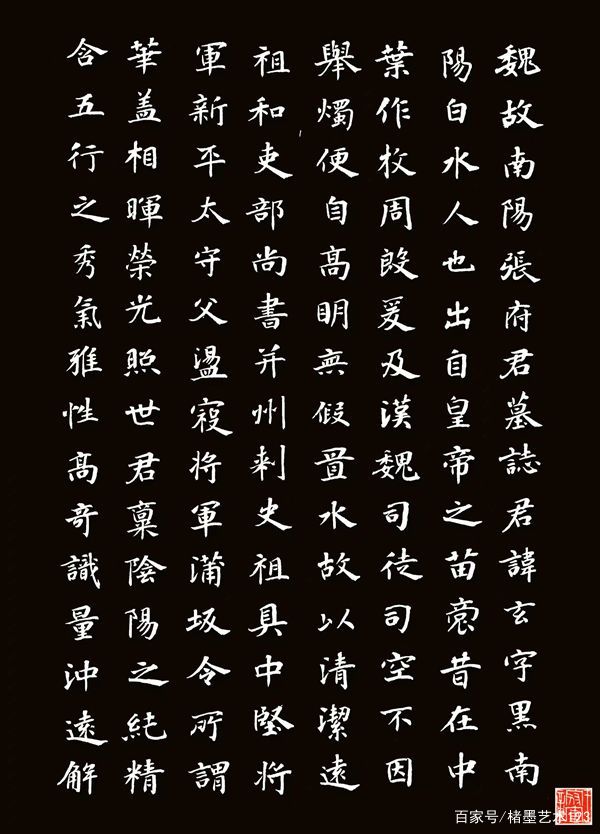 魏故南陽張府君墓誌君諱玄字黑南
陽白水人也出自皇帝之苗裔昔在中
葉作牧周殷爰及漢魏司徒司空不因
舉燭便自髙明无假置水故以清潔遠
祖和吏部尚書并州刺史祖具中堅將
軍新平太守父盪寇將軍蒲坂令所謂
華盖相暉榮光照世君稟陰陽之純精
含五行之秀氣雅性髙奇識量沖遠解
百家号/楮墨艺术123